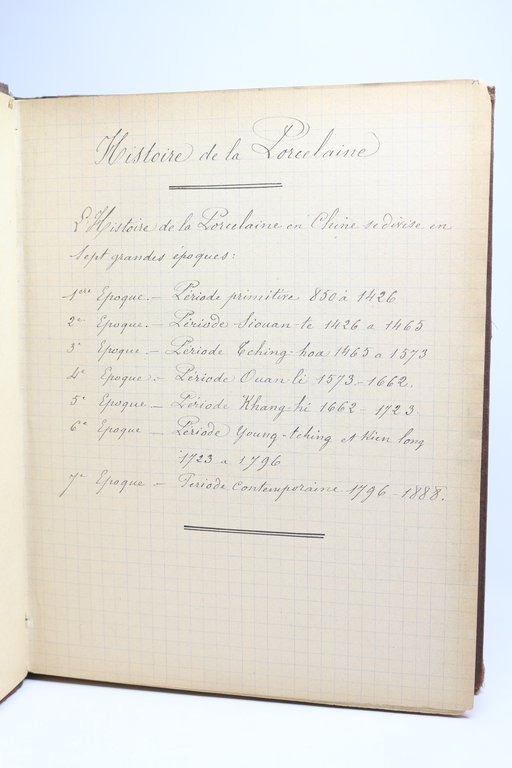 Histoire de la Porcelaine
L'Histoire de la Porcelaine en Chine se divise en
sept grandes époques:
1ere Epoque. — Période primitive 850 à 1426
2e Epoque. — Période Siouan-te 1426 a 1465
3e Epoque — Période Tching-hoa 1465 a 1573
4e Epoque. — Période Ouan-li 1573-1662.
5e Epoque — Période Khang-hi 1662-1723.
6e Epoque — Période Young-tching et Kien long
1723 a 1796
7e Epoque — Periode contemporaine 1796-1888.